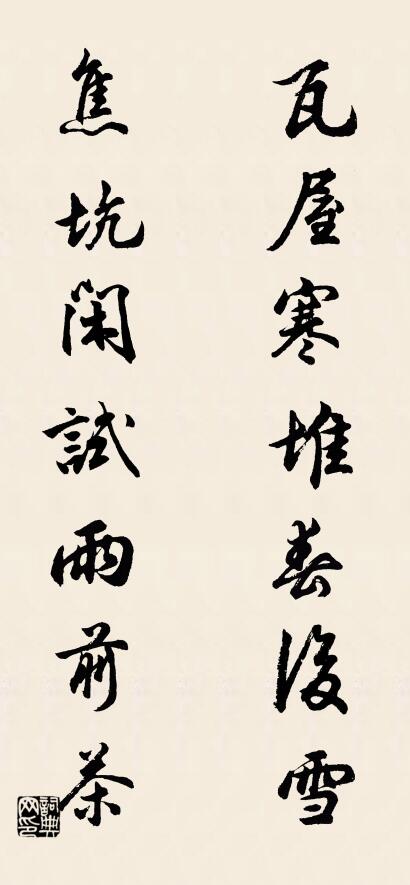 瓦屋寒堆春後雪
焦坑閑試雨前茶
詞典網印